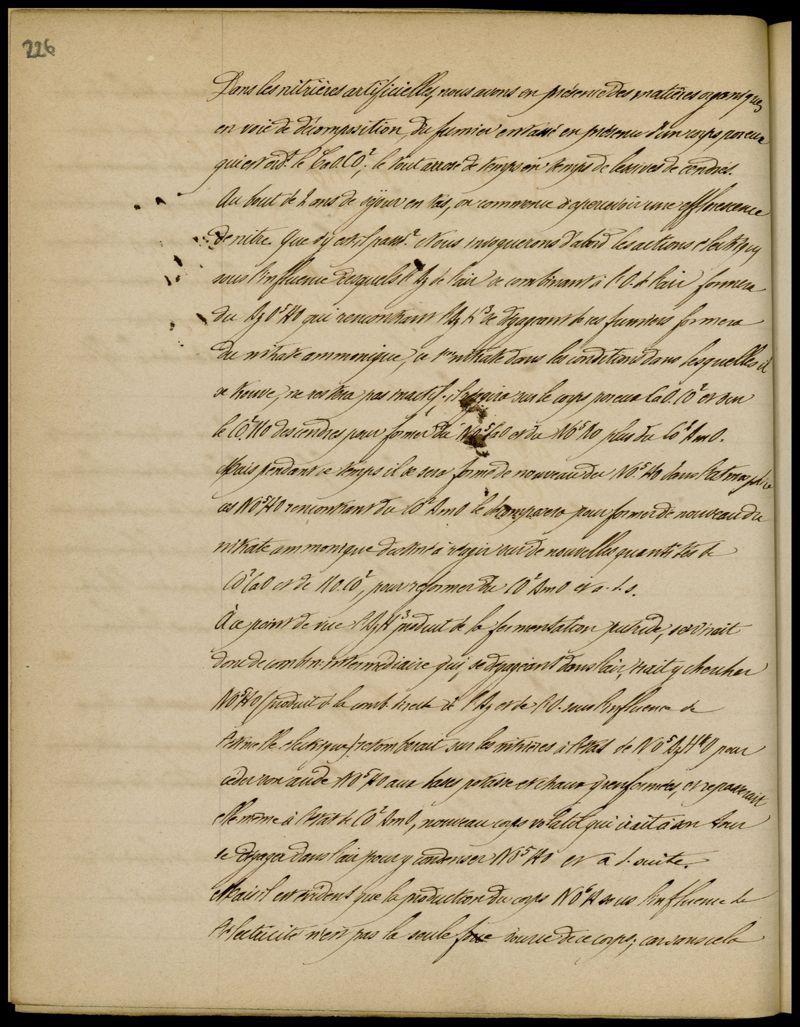 226
Dans les nitrières artificielles, nous avons en présence des matières organiques
en voie de décomposition du fumier entassé en présence d'un corps poreux
qui est ord.t le CaO.CO², le tout arrosé de temps en temps de lessives de cendres.
Au bout de 2 ans de séjour en tas, on commence à apercevoir une efflorescence
de nitre. Que s'y est-il passé. Nous invoquerons d'abord les actions électriq
sous l'influence desquels l'Az de l'air se combinant à l'O. de l'air formera
du AzO⁵HO qui rencontrant l'AzH³ se dégageant de ces fumiers formera
du nitrate ammonique, ce nitrate dans les conditions dans lesquelles il
se trouve, ne restera pas inactif. il réagira sur le corps poreux CaO.CO² et sur
le CO²KO des cendres pour former du NO⁵CaO et du NO⁵KO plus du CO²AmO.
Mais pendant ce temps il se sera formé de nouveau du NO⁵HO dans l'atmosphère
ces NO⁵HO rencontrant du CO²AmO le décomposera pour former de nouveau du
nitrate ammonique destiné à réagir sur de nouvelles quantités de
CO²CaO et de KO.CO², pour reformer du CO²AmO et a.d.s.
À ce point de vue l'AzH³ produit de la fermentation putride, servirait
donc de comb.n intermédiaire qui, se dégageant dans l'air, irait y chercher
NO⁵HO (produit de la comb. directe de l'Az et de l'O. sous l'influence de
l'étincelle électrique) retomberait sur les nitrières à l'état de NO⁵AzH⁴O pour
céder son acide NO⁵HO aux bases potasse et chaux y renfermées, et repasserait
elle même à l'état de CO²AmO, nouveau corps volatil qui irait à son tour
se dégager dans l'air pour y condenser NO⁵HO et a. d. suite.
Mais il est évident que la production du corps NO⁵H sous l'influence de
l'électricité n'est pas la seule source de ce corps, car sans cela